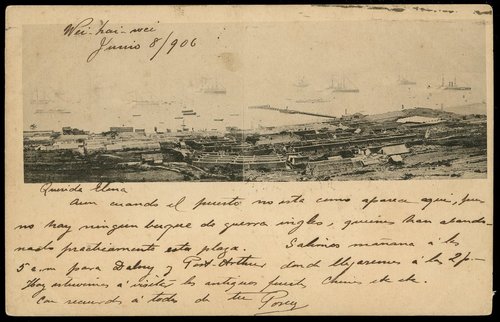 Wei-hai-wei
Junio 8/906
Querida Elena
Aun cuando el puerto no esta como aparece aqui, pues
no hay ningun buque de guerra ingles, quienes han abando-
nado prácticamente esta plaza. Salimos mañana á las
5 a.m para Dalny y Port-Arthur, donde llegaremos á las 2 p-
Hoy estuvimos á visitar los antiguos fuertes chinos etc etc.
Con recuerdos á todos de tu